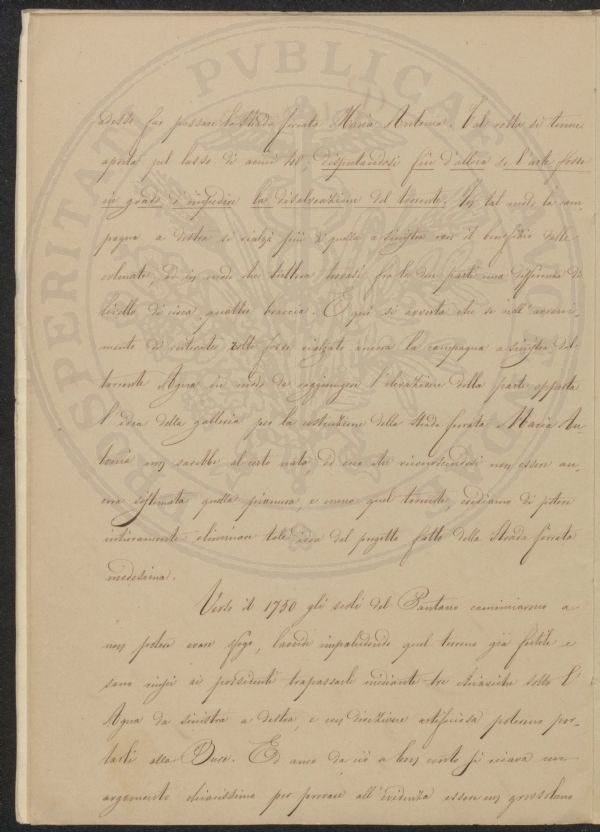 adesso far passare la Strada ferrata Maria Antonia. Tal rotta si tenne
aperta pel lasso di anni 40 disputandosi fin d'allora se l'arte fosse
in grado d'impedire la disalveazione del torrente. In tal modo la cam-
pagna a destra si rialzò più di quella a sinistra con il benefizio delle
colmate, ed in modo che tuttora havvi fra le due parti una differenza di
livello di circa quattro braccia. E qui si avverta che se nell'avveni-
mento di rotta fosse rialzata ancora la campagna a sinistra del
torrente Agna in modo da raggiungere l'elevazione della parte opposta
l'idea della galleria per la costruzione della Strada ferrata Maria An-
tonia non sarebbe al certo nata ed ora che riconoscendosi non essere an-
cora sistemata quella pianura, e meno quel torrente, crediamo di potere
intieramente eliminare tale idea dal progetto fatto della Strada ferrata
medesima.
Verso il 1750 gli scoli del Pantano cominciarono a
non potere avere sfogo, laonde impaludando quel terreno già fertile e
sano riuscì ai possidenti trapassarli mediante tre chiaviche sotto l'
Agna da sinistra a destra, e con direzione artificiosa poterono por-
tarli alla Dura. Ed anco da ciò a buon conto si ricava un
argomento chiarissimo per provare all'evidenza essere un grossolano